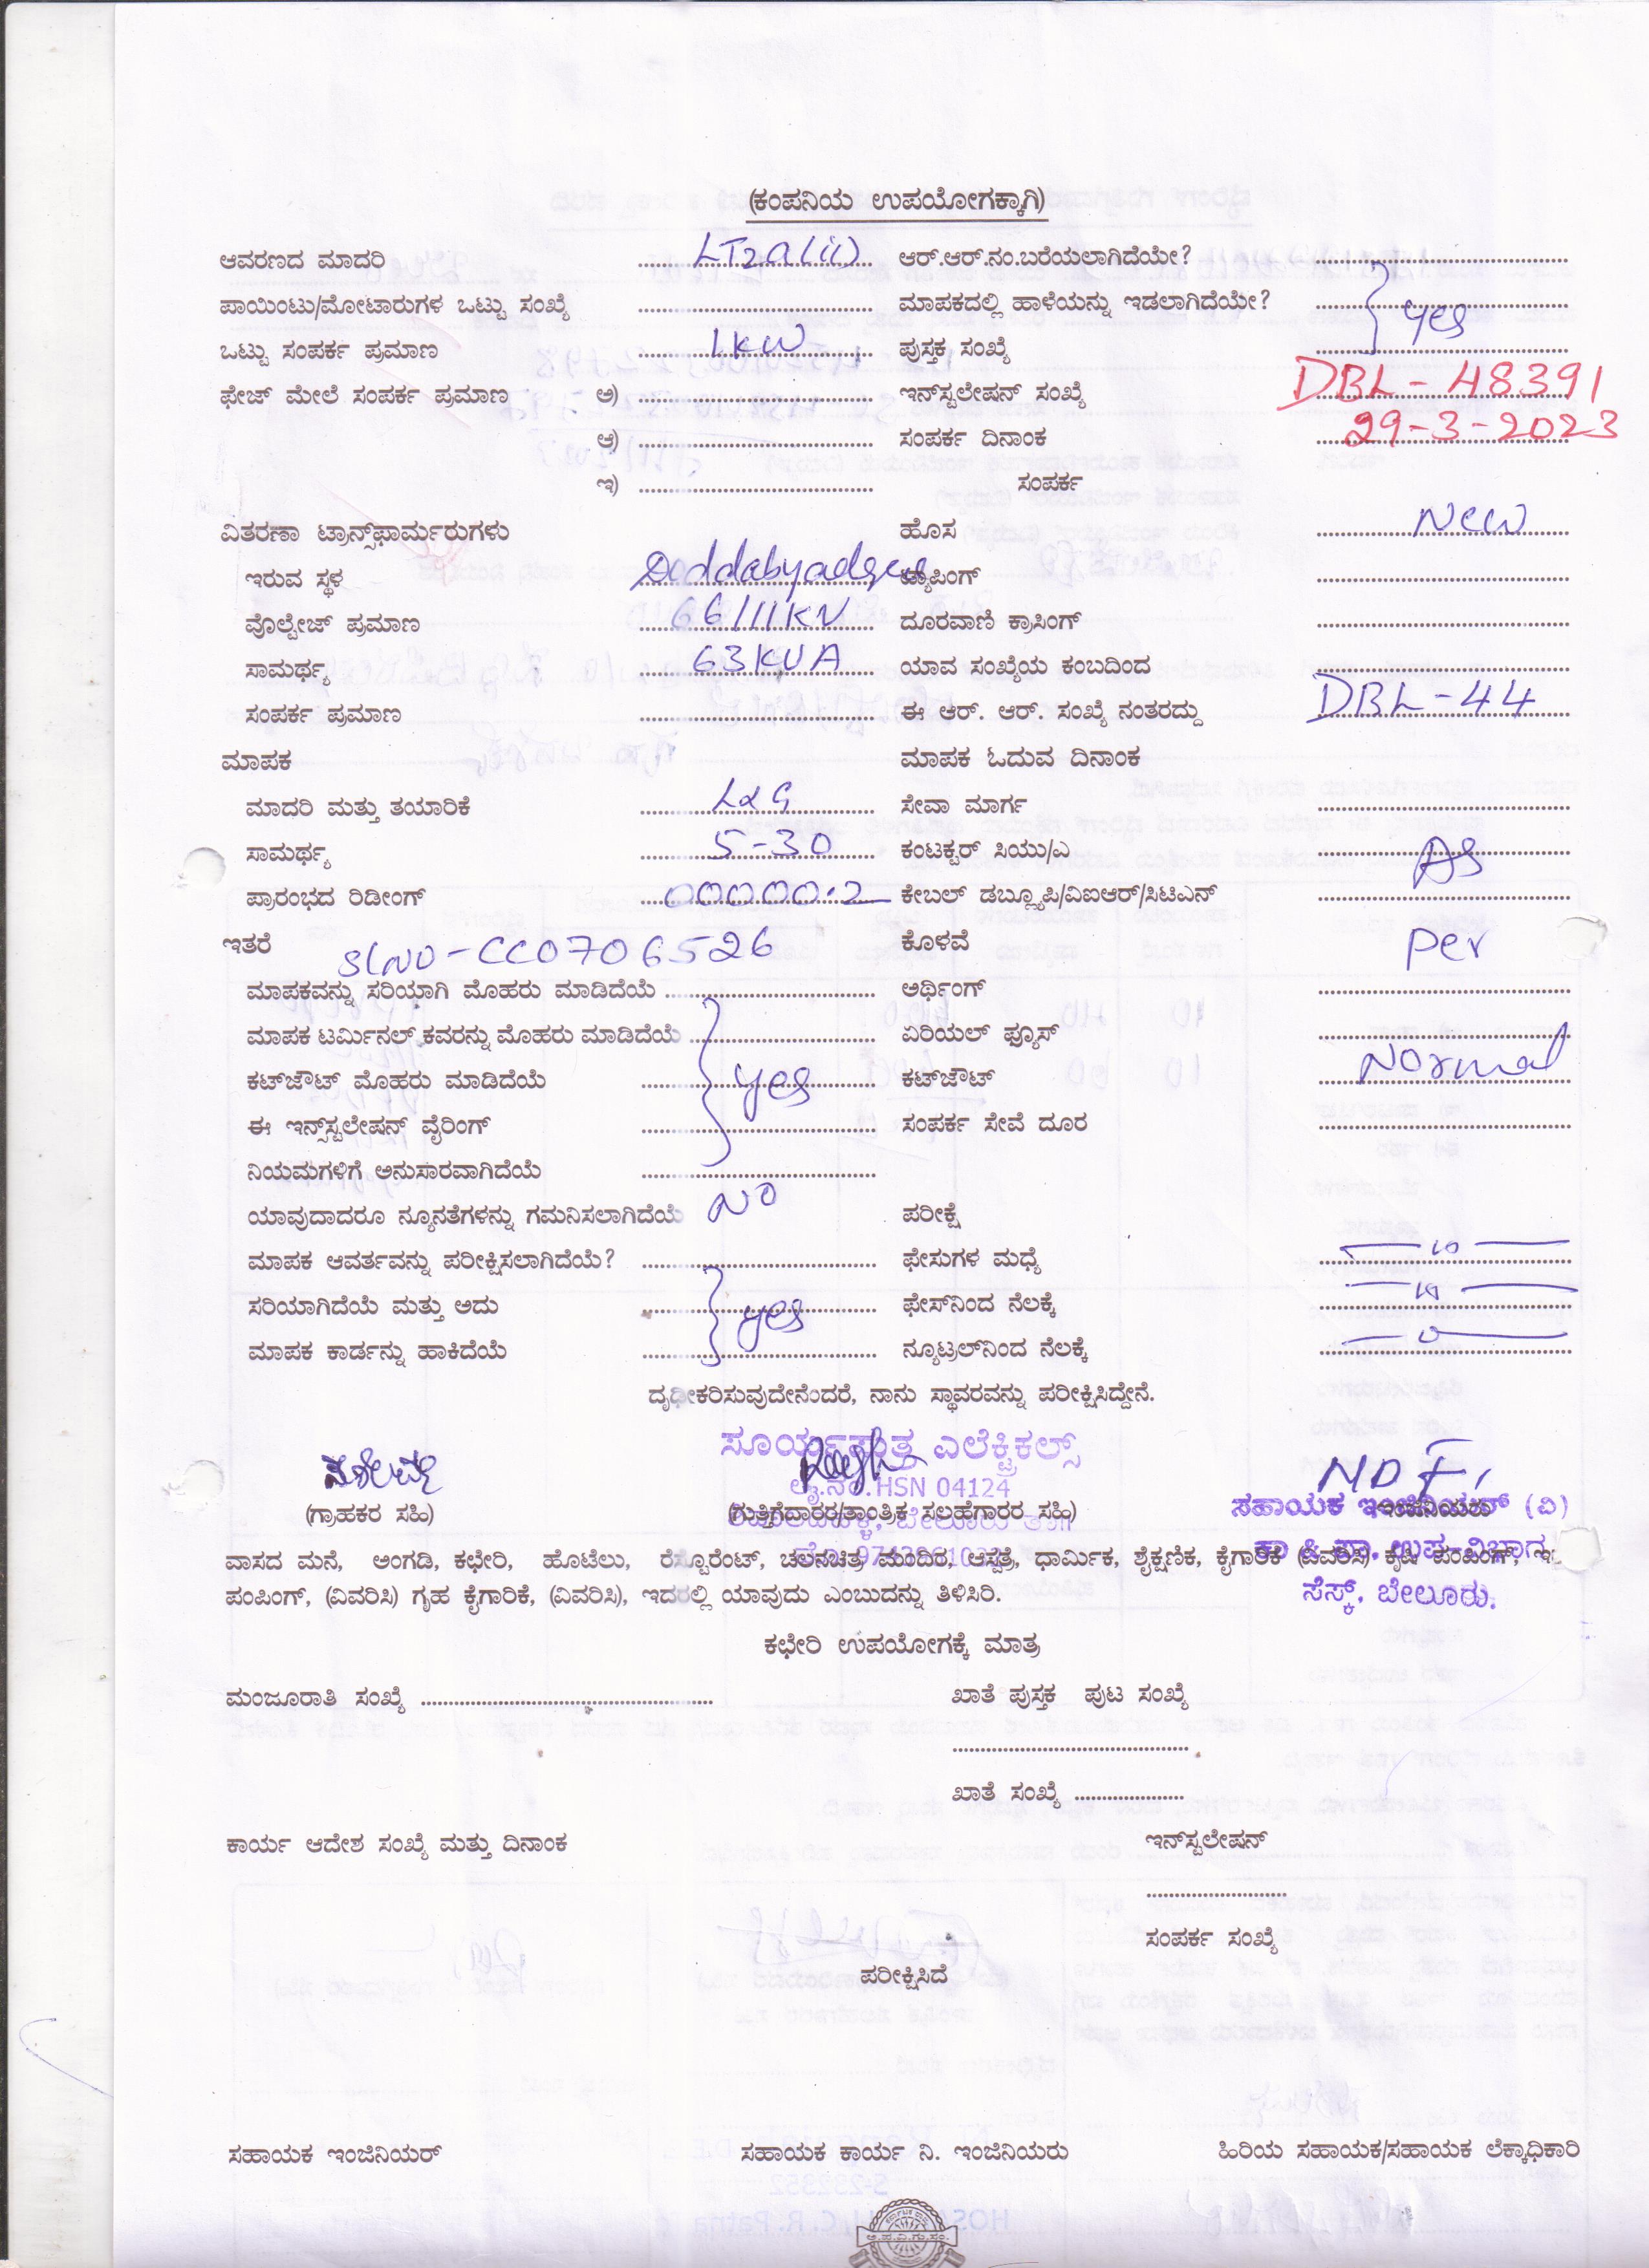 (ಕಂಪನಿಯ ಉಪಯೋಗಕ್ಕಾಗಿ)
ಆವರಣದ ಮಾದರಿ LT2a(ii) ಆರ್.ಆರ್.ನಂ.ಬರೆಯಲಾಗಿದೆಯೇ?
ಪಾಯಿಂಟು/ಮೋಟಾರುಗಳ ಒಟ್ಟು ಸಂಖ್ಯೆ ಮಾಪಕದಲ್ಲಿ ಹಾಳೆಯನ್ನು ಇಡಲಾಗಿದೆಯೇ? yes
ಒಟ್ಟು ಸಂಪರ್ಕ ಪ್ರಮಾಣ 1KW ಪುಸ್ತಕ ಸಂಖ್ಯೆ
ಫೇಜ್ ಮೇಲೆ ಸಂಪರ್ಕ ಪ್ರಮಾಣ ಅ) ಇನ್‌ಸ್ಟಲೇಷನ್ ಸಂಖ್ಯೆ DBL-48391
ಆ) ಸಂಪರ್ಕ ದಿನಾಂಕ 29-3-2023
ಇ) ಸಂಪರ್ಕ
ವಿತರಣಾ ಟ್ರಾನ್ಸ್‌ಫಾರ್ಮರುಗಳು ಹೊಸ New
ಇರುವ ಸ್ಥಳ ಟ್ಯಾಪಿಂಗ್
ವೊಲ್ಟೇಜ್ ಪ್ರಮಾಣ 66/11KV ದೂರವಾಣಿ ಕ್ರಾಸಿಂಗ್
ಸಾಮರ್ಥ್ಯ 63KVA ಯಾವ ಸಂಖ್ಯೆಯ ಕಂಬದಿಂದ
ಸಂಪರ್ಕ ಪ್ರಮಾಣ ಈ ಆರ್. ಆರ್. ಸಂಖ್ಯೆ ನಂತರದ್ದು DBL-44
ಮಾಪಕ ಮಾಪಕ ಓದುವ ದಿನಾಂಕ
ಮಾದರಿ ಮತ್ತು ತಯಾರಿಕೆ L&G ಸೇವಾ ಮಾರ್ಗ
ಸಾಮರ್ಥ್ಯ 5-30 ಕಂಟಕ್ಟರ್ ಸಿಯು/ಎ As
ಪ್ರಾರಂಭದ ರಿಡೀಂಗ್ 00000.2 ಕೇಬಲ್ ಡಬ್ಲ್ಯೂಪಿ/ವಿಐಆರ್/ಸಿಟಿಎನ್
ಇತರೆ SlNo-CC0706526 ಕೊಳವೆ per
ಮಾಪಕವನ್ನು ಸರಿಯಾಗಿ ಮೊಹರು ಮಾಡಿದೆಯೆ ಅರ್ಥಿಂಗ್
ಮಾಪಕ ಟರ್ಮಿನಲ್ ಕವರನ್ನು ಮೊಹರು ಮಾಡಿದೆಯೆ ಏರಿಯಲ್ ಫ್ಯೂಸ್
ಕಟ್‌ಔಟ್ ಮೊಹರು ಮಾಡಿದೆಯೆ yes ಕಟ್‌ಔಟ್ Normal
ಈ ಇನ್ಸ್‌ಸ್ಟಲೇಷನ್ ವೈರಿಂಗ್ ಸಂಪರ್ಕ ಸೇವೆ ದೂರ
ನಿಯಮಗಳಿಗೆ ಅನುಸಾರವಾಗಿದೆಯೆ
ಯಾವುದಾದರೂ ನ್ಯೂನತೆಗಳನ್ನು ಗಮನಿಸಲಾಗಿದೆಯೆ No ಪರೀಕ್ಷೆ
ಮಾಪಕ ಆವರ್ತವನ್ನು ಪರೀಕ್ಷಿಸಲಾಗಿದೆಯೆ? ಫೇಸುಗಳ ಮಧ್ಯೆ
ಸರಿಯಾಗಿದೆಯೆ ಮತ್ತು ಅದು yes ಫೇಸ್‌ನಿಂದ ನೆಲಕ್ಕೆ
ಮಾಪಕ ಕಾರ್ಡನ್ನು ಹಾಕಿದೆಯೆ ನ್ಯೂಟ್ರಲ್‌ನಿಂದ ನೆಲಕ್ಕೆ
ದೃಢೀಕರಿಸುವುದೇನೆಂದರೆ, ನಾನು ಸ್ಥಾವರವನ್ನು ಪರೀಕ್ಷಿಸಿದ್ದೇನೆ.
ಎಲೆಕ್ಟ್ರಿಕಲ್ಸ್
ಲೈ.ನಂ.HSN 04124
(ಗ್ರಾಹಕರ ಸಹಿ) (ಗುತ್ತಿಗೆದಾರರ/ತಾಂತ್ರಿಕ ಸಲಹೆಗಾರರ ಸಹಿ) ಇಂಜಿನಿಯರು
ಸಹಾಯಕ ಇಂಜಿನಿಯರ್ (ವಿ)
ಕಾ & ಪಾ. ಉಪ-ವಿಭಾಗ
ಸೆಸ್ಕ್, ಬೇಲೂರು.
ವಾಸದ ಮನೆ, ಅಂಗಡಿ, ಕಛೇರಿ, ಹೊಟೆಲು, ರೆಸ್ಟೊರೆಂಟ್, ಚಲನಚಿತ್ರ ಮಂದಿರ, ಆಸ್ಪತ್ರೆ, ಧಾರ್ಮಿಕ, ಶೈಕ್ಷಣಿಕ, ಕೈಗಾರಿಕೆ (ವಿವರಿಸಿ) ಕೃಷಿ ಪಂಪಿಂಗ್,
ಪಂಪಿಂಗ್, (ವಿವರಿಸಿ) ಗೃಹ ಕೈಗಾರಿಕೆ, (ವಿವರಿಸಿ), ಇದರಲ್ಲಿ ಯಾವುದು ಎಂಬುದನ್ನು ತಿಳಿಸಿರಿ.
ಕಛೇರಿ ಉಪಯೋಗಕ್ಕೆ ಮಾತ್ರ
ಮಂಜೂರಾತಿ ಸಂಖ್ಯೆ ಖಾತೆ ಪುಸ್ತಕ ಪುಟ ಸಂಖ್ಯೆ
ಖಾತೆ ಸಂಖ್ಯೆ
ಕಾರ್ಯ ಆದೇಶ ಸಂಖ್ಯೆ ಮತ್ತು ದಿನಾಂಕ ಇನ್‌ಸ್ಟಲೇಷನ್
ಸಂಪರ್ಕ ಸಂಖ್ಯೆ
ಪರೀಕ್ಷಿಸಿದೆ
ಸಹಾಯಕ ಇಂಜಿನಿಯರ್ ಸಹಾಯಕ ಕಾರ್ಯ ನಿ. ಇಂಜಿನಿಯರು ಹಿರಿಯ ಸಹಾಯಕ/ಸಹಾಯಕ ಲೆಕ್ಕಾಧಿಕಾರಿ